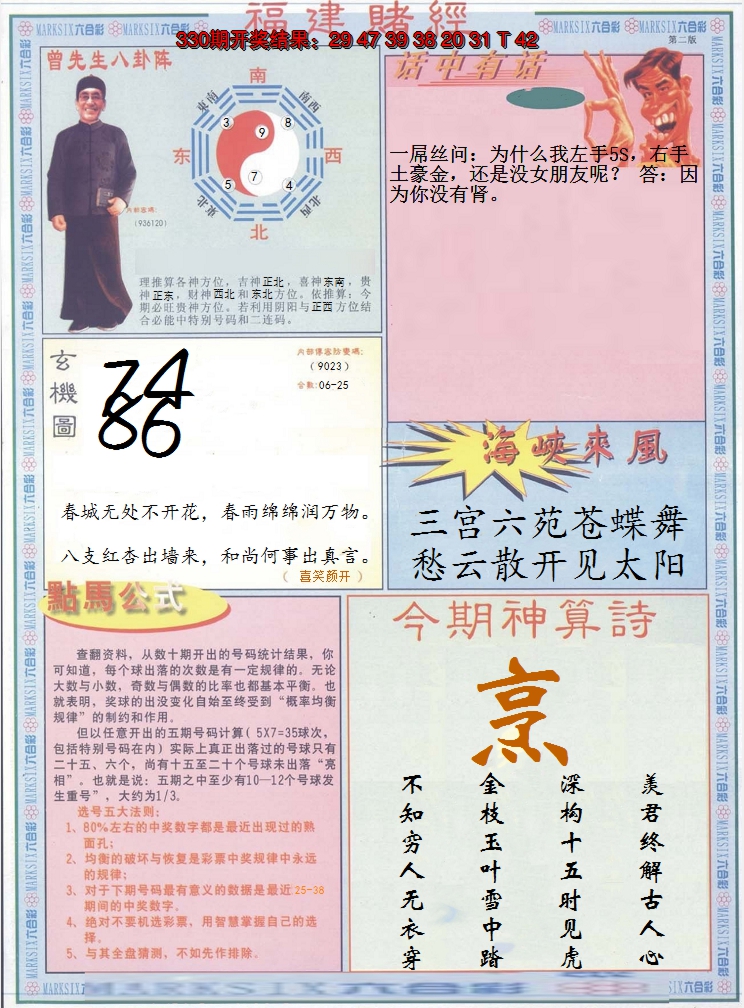 福建賭經
MARKSIX六合彩
330期开奖结果: 29 47 39 38 20 31 T 42
第二版
曾先生八卦阵
南
東南
西南
3
8
9
东
西
5
7
4
東北
西北
北
(936120)
理推算各神方位，吉神正北，喜神东南，贵
神正东，财神西北和东北方位。依推算：今
期必旺贵神方位。若利用阴阳与正西方位结
合必能中特别号码和二连码。
话中有话
一屌丝问：为什么我左手5S，右手
土豪金，还是没女朋友呢？ 答：因
为你没有肾。
玄機圖
74
86
(9023)
合数:06-25
春城无处不开花，春雨绵绵润万物。
八支红杏出墙来，和尚何事出真言。
( 喜笑颜开 )
海峽來風
三宫六苑苍蝶舞
愁云散开见太阳
點馬公式
查翻资料，从数十期开出的号码统计结果，你
可知道，每个球出落的次数是有一定规律的。无论
大数与小数，奇数与偶数的比率也都基本平衡。也
就表明，奖球的出没变化自始至终受到“概率均衡
规律”的制约和作用。
但以任意开出的五期号码计算( 5X7=35球次，
包括特别号码在内) 实际上真正出落过的号球只有
二十五、六个，尚有十五至二十个号球未出落“亮
相”。也就是说：五期之中至少有10—12个号球发
生重号”，大约为1/3。
选号五大法则：
1、80%左右的中奖数字都是最近出现过的熟
面孔；
2、均衡的破坏与恢复是彩票中奖规律中永远
的规律；
3、对于下期号码最有意义的数据是最近25-38
期间的中奖数字。
4、绝对不要机选彩票，用智慧掌握自己的选
择。
5、与其全盘猜测，不如先作排除。
今期神算詩
烹
羡君终解古人心
深构十五时见虎
金枝玉叶雪中踏
不知穷人无衣穿